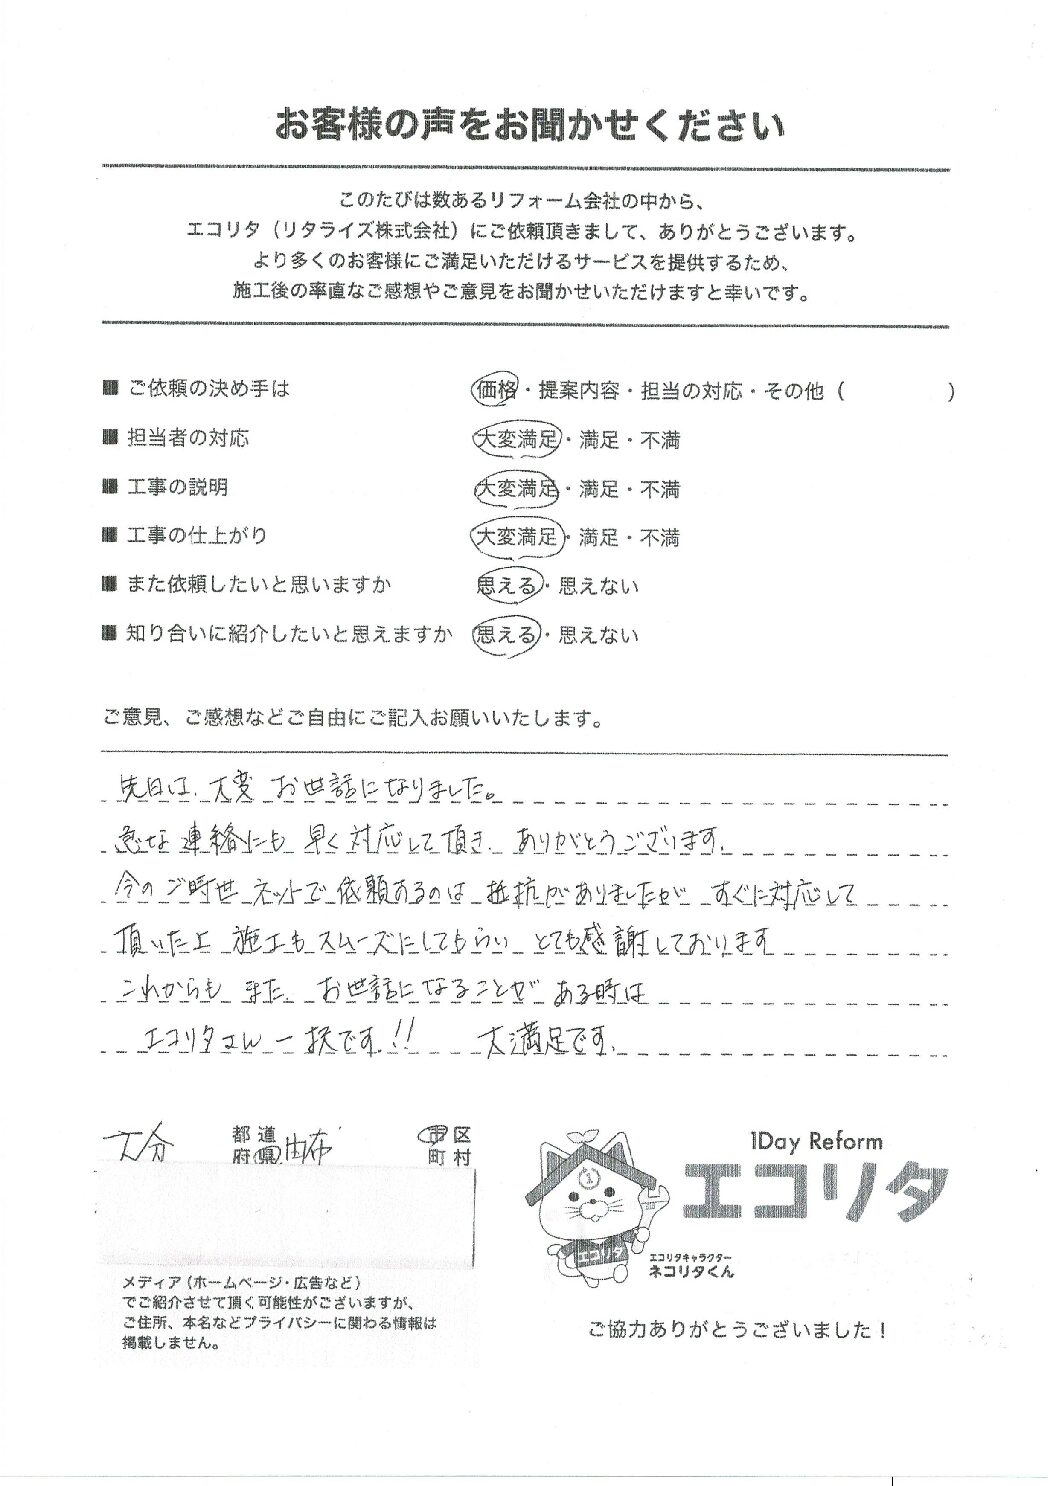 お客様の声をお聞かせください
このたびは数あるリフォーム会社の中から、
エコリタ（リタライズ株式会社）にご依頼頂きまして、ありがとうございます。
より多くのお客様にご満足いただけるサービスを提供するため、
施工後の率直なご感想やご意見をお聞かせいただけますと幸いです。
■ ご依頼の決め手は 価格・提案内容・担当の対応・その他（ ）
■ 担当者の対応 大変満足・満足・不満
■ 工事の説明 大変満足・満足・不満
■ 工事の仕上がり 大変満足・満足・不満
■ また依頼したいと思いますか 思える・思えない
■ 知り合いに紹介したいと思えますか 思える・思えない
ご意見、ご感想などご自由にご記入お願いいたします。
先日は、大変 お世話になりました。
急な 連絡にも 早く対応して頂き、ありがとうございます。
今のご時世 ネットで依頼するのは 抵抗がありましたが すぐに対応して
頂いた上 施工もスムーズにしてもらい とても感謝しております
これからも また お世話になることが ある時は
エコリタさん一択です!! 大満足です。
大分 都道府県 由布 市区町村
1Day Reform
エコリタ
エコリタ
エコリタキャラクター
ネコリタくん
メディア（ホームページ・広告など）
でご紹介させて頂く可能性がございますが、
ご住所、本名などプライバシーに関わる情報は
掲載しません。
ご協力ありがとうございました！